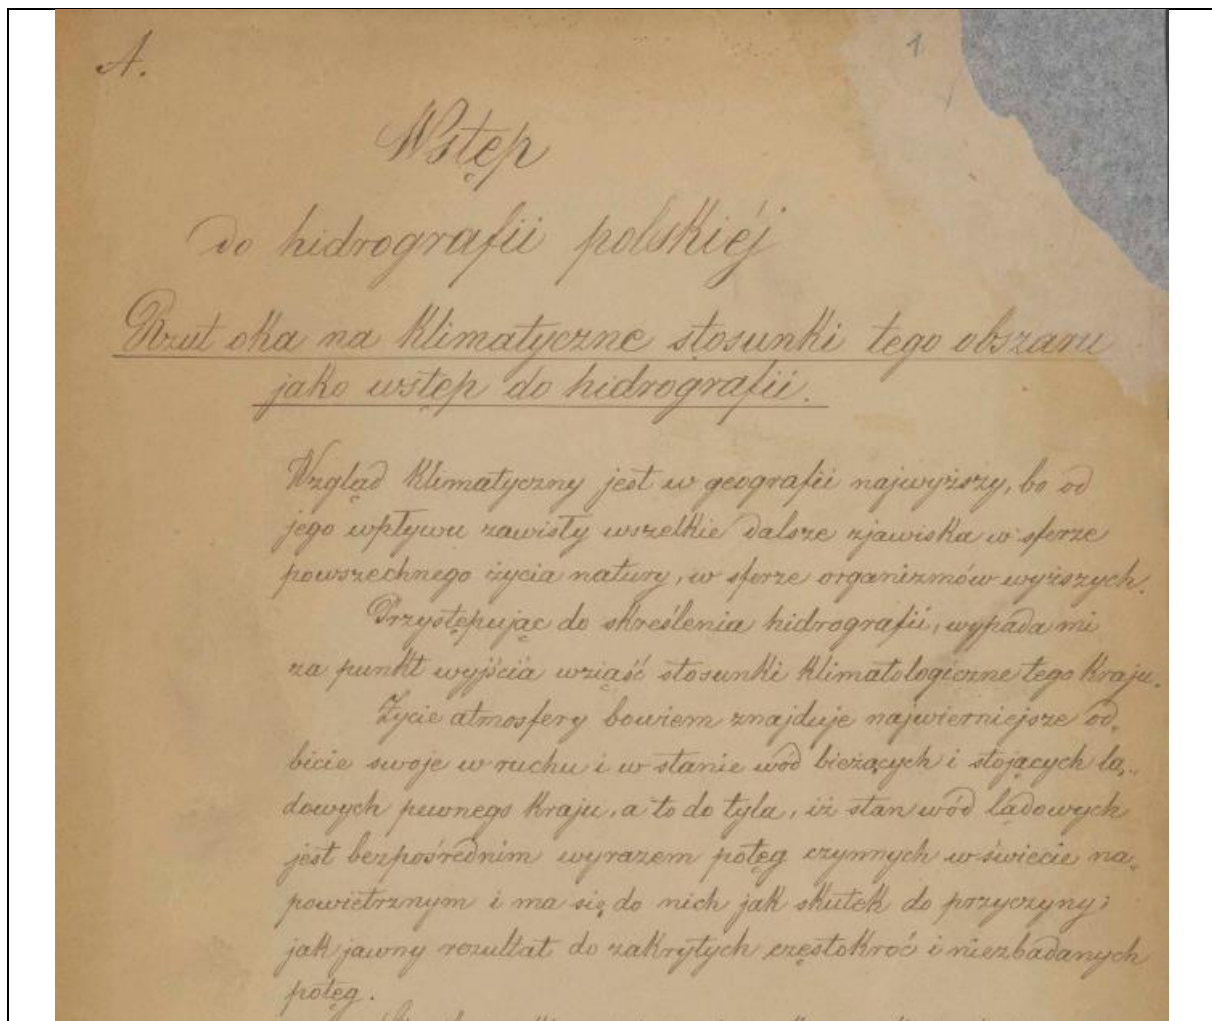 A.
1
Wstęp
do hidrografii polskiéj
Rzut oka na klimatyczne stosunki tego obszaru
jako wstęp do hidrografii.
Wzgląd klimatyczny jest w geografii najwyższy, bo od
jego wpływu zawisły wszelkie dalsze zjawiska w sferze
powszechnego życia natury, w sferze organizmów wyższych.
Przystępując do skreślenia hidrografii, wypada mi
za punkt wyjścia wziąść stosunki klimatologiczne tego kraju.
Życie atmosfery bowiem znajduje najwierniejsze od„
bicie swoje w ruchu i w stanie wód bieżących i stojących lą„
dowych pewnego kraju, a to do tyla, iż stan wód lądowych
jest bezpośrednim wyrazem potęg czynnych w świecie na„
powietrznym i ma się do nich jak skutek do przyczyny;
jak jawny rezultat do zakrytych częstokroć i niezbadanych
potęg.